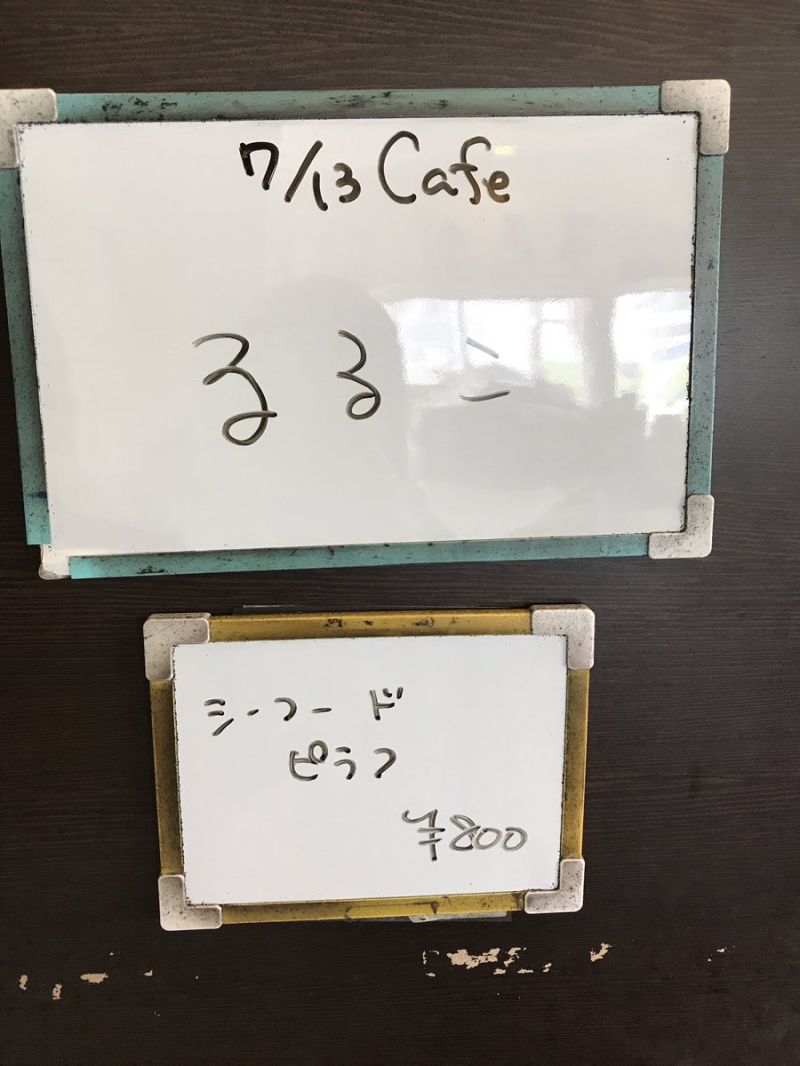 7/13 Cafe
るるこ
シーフード
ピラフ
¥800